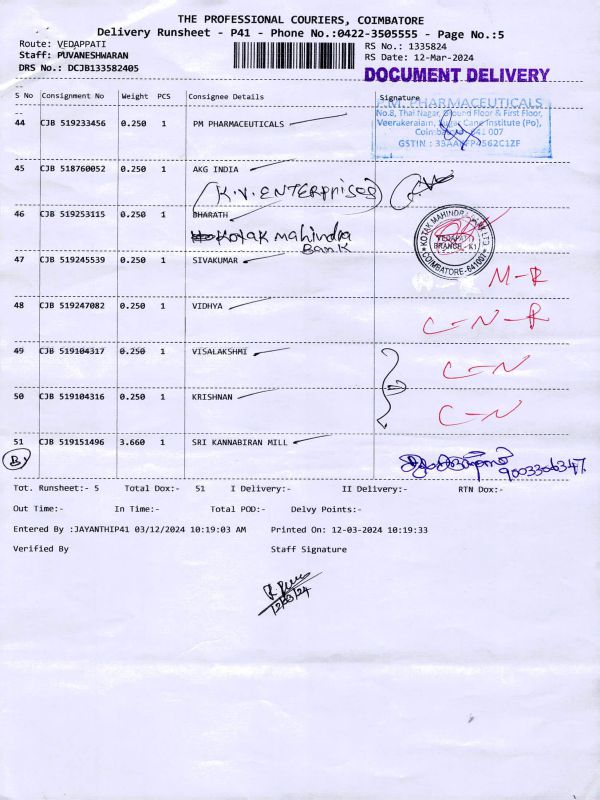 THE PROFESSIONAL COURIERS, COIMBATORE
Delivery Runsheet - P41 - Phone No.:0422-3505555 - Page No.:5
Route: VEDAPPATI
Staff: PUVANESHWARAN
DRS No.: DCJB133582405
RS No.: 1335824
RS Date: 12-Mar-2024
DOCUMENT DELIVERY
S No Consignment No Weight PCS Consignee Details Signature
44 CJB 519233456 0.250 1 PM PHARMACEUTICALS
P.M. PHARMACEUTICALS
No.8, Thai Nagar, Ground Floor & First Floor,
Veerakeralam, Sugar Cane Institute (Po),
Coimbatore - 641 007
45 CJB 518760052 0.250 1 AKG INDIA
(K.V. ENTERPRISES)
46 CJB 519253115 0.250 1 BHARATH
Kotak Mahindra
Bank
KOTAK MAHINDRA BANK LTD
VEDAPATTI
BRANCH
COIMBATORE-641007
47 CJB 519245539 0.250 1 SIVAKUMAR
M-R
48 CJB 519247082 0.250 1 VIDHYA
C-N-R
49 CJB 519104317 0.250 1 VISALAKSHMI
C-N
50 CJB 519104316 0.250 1 KRISHNAN
C-N
51 CJB 519151496 3.660 1 SRI KANNABIRAN MILL
9003306347
Tot. Runsheet:- 5 Total Dox:- 51 I Delivery:- II Delivery:- RTN Dox:-
Out Time:- In Time:- Total POD:- Delvy Points:-
Entered By :JAYANTHIP41 03/12/2024 10:19:03 AM Printed On: 12-03-2024 10:19:33
Verified By Staff Signature
12/03/24